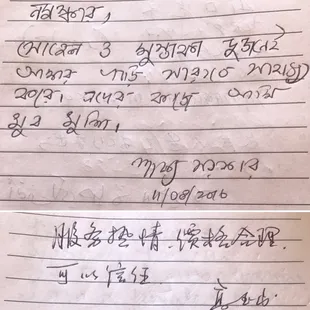 নমস্কার,
সোহেল ও মুস্তাফা দুজনেই
আমার গাড়ি সারাতে সাহায্য
করে। এদের কাজে আমি
খুব খুশি,
সরকার
11/08/2016
服务热情.价格合理.
可以信任